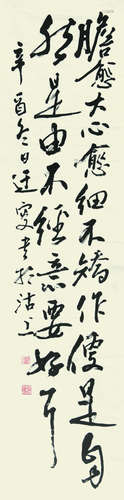 膽愈大心愈細不矯作便是自
然是由不經意要好耳
辛酉冬日迂叟書於沽上